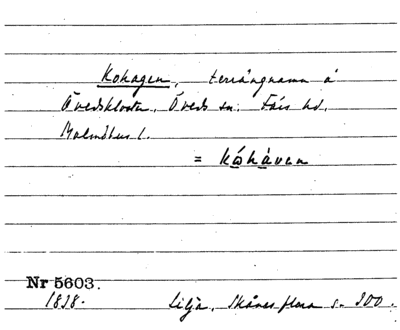 Kohagen, terrängnamn å
Övedskloster, Öveds sn. Färs hd.
Malmöhus l.
= Kóháven
Nr 5603.
1838. Lilja, Skånes flora s. 300.